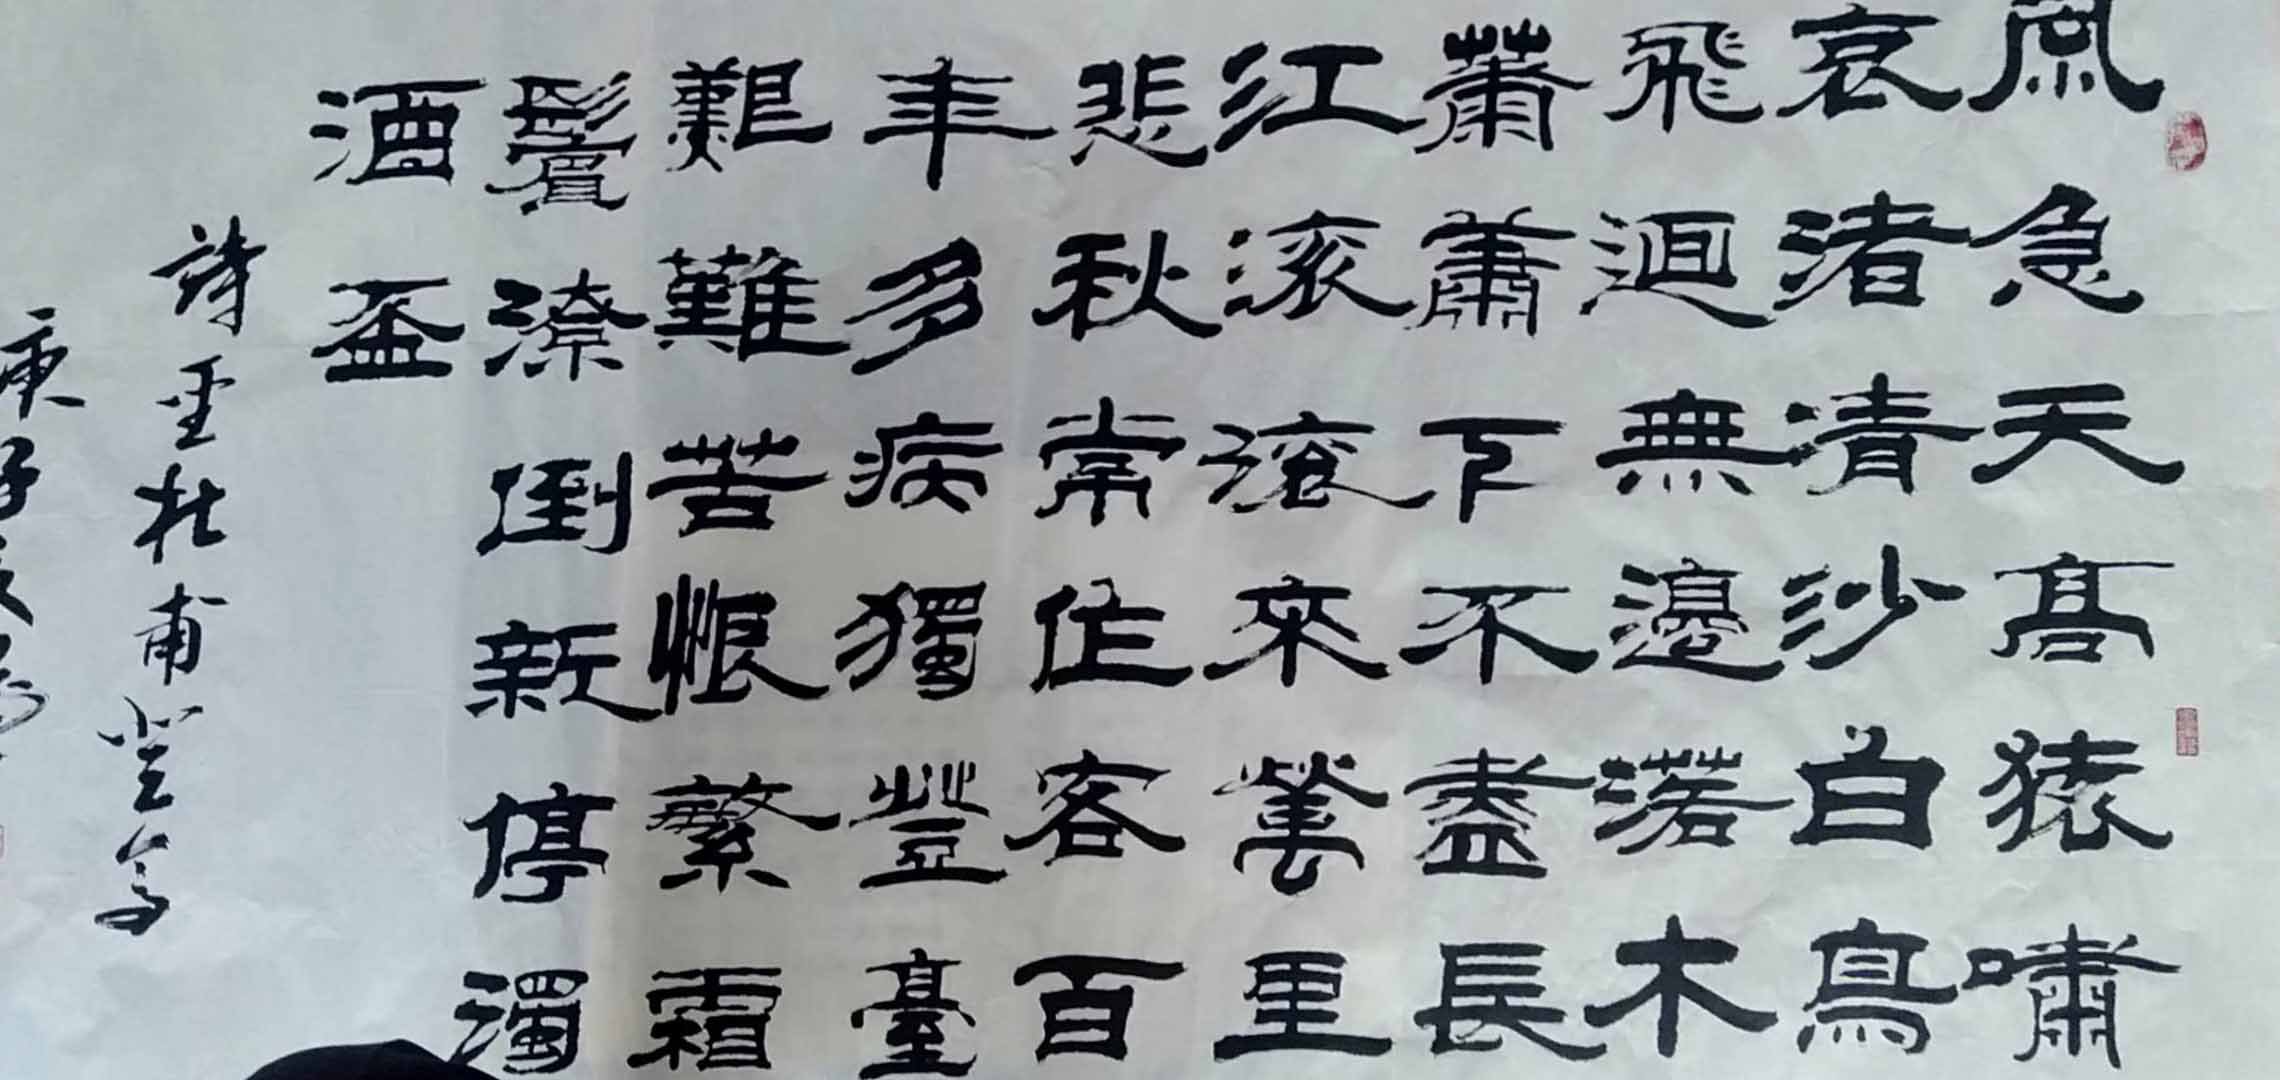 風急天高猿嘯
哀渚清沙白鳥
飛迴無邊落木
蕭蕭下不盡長
江滾滾來萬里
悲秋常作客百
年多病獨登臺
艱難苦恨繁霜
鬢潦倒新停濁
酒盃
詩聖杜甫登高
庚子